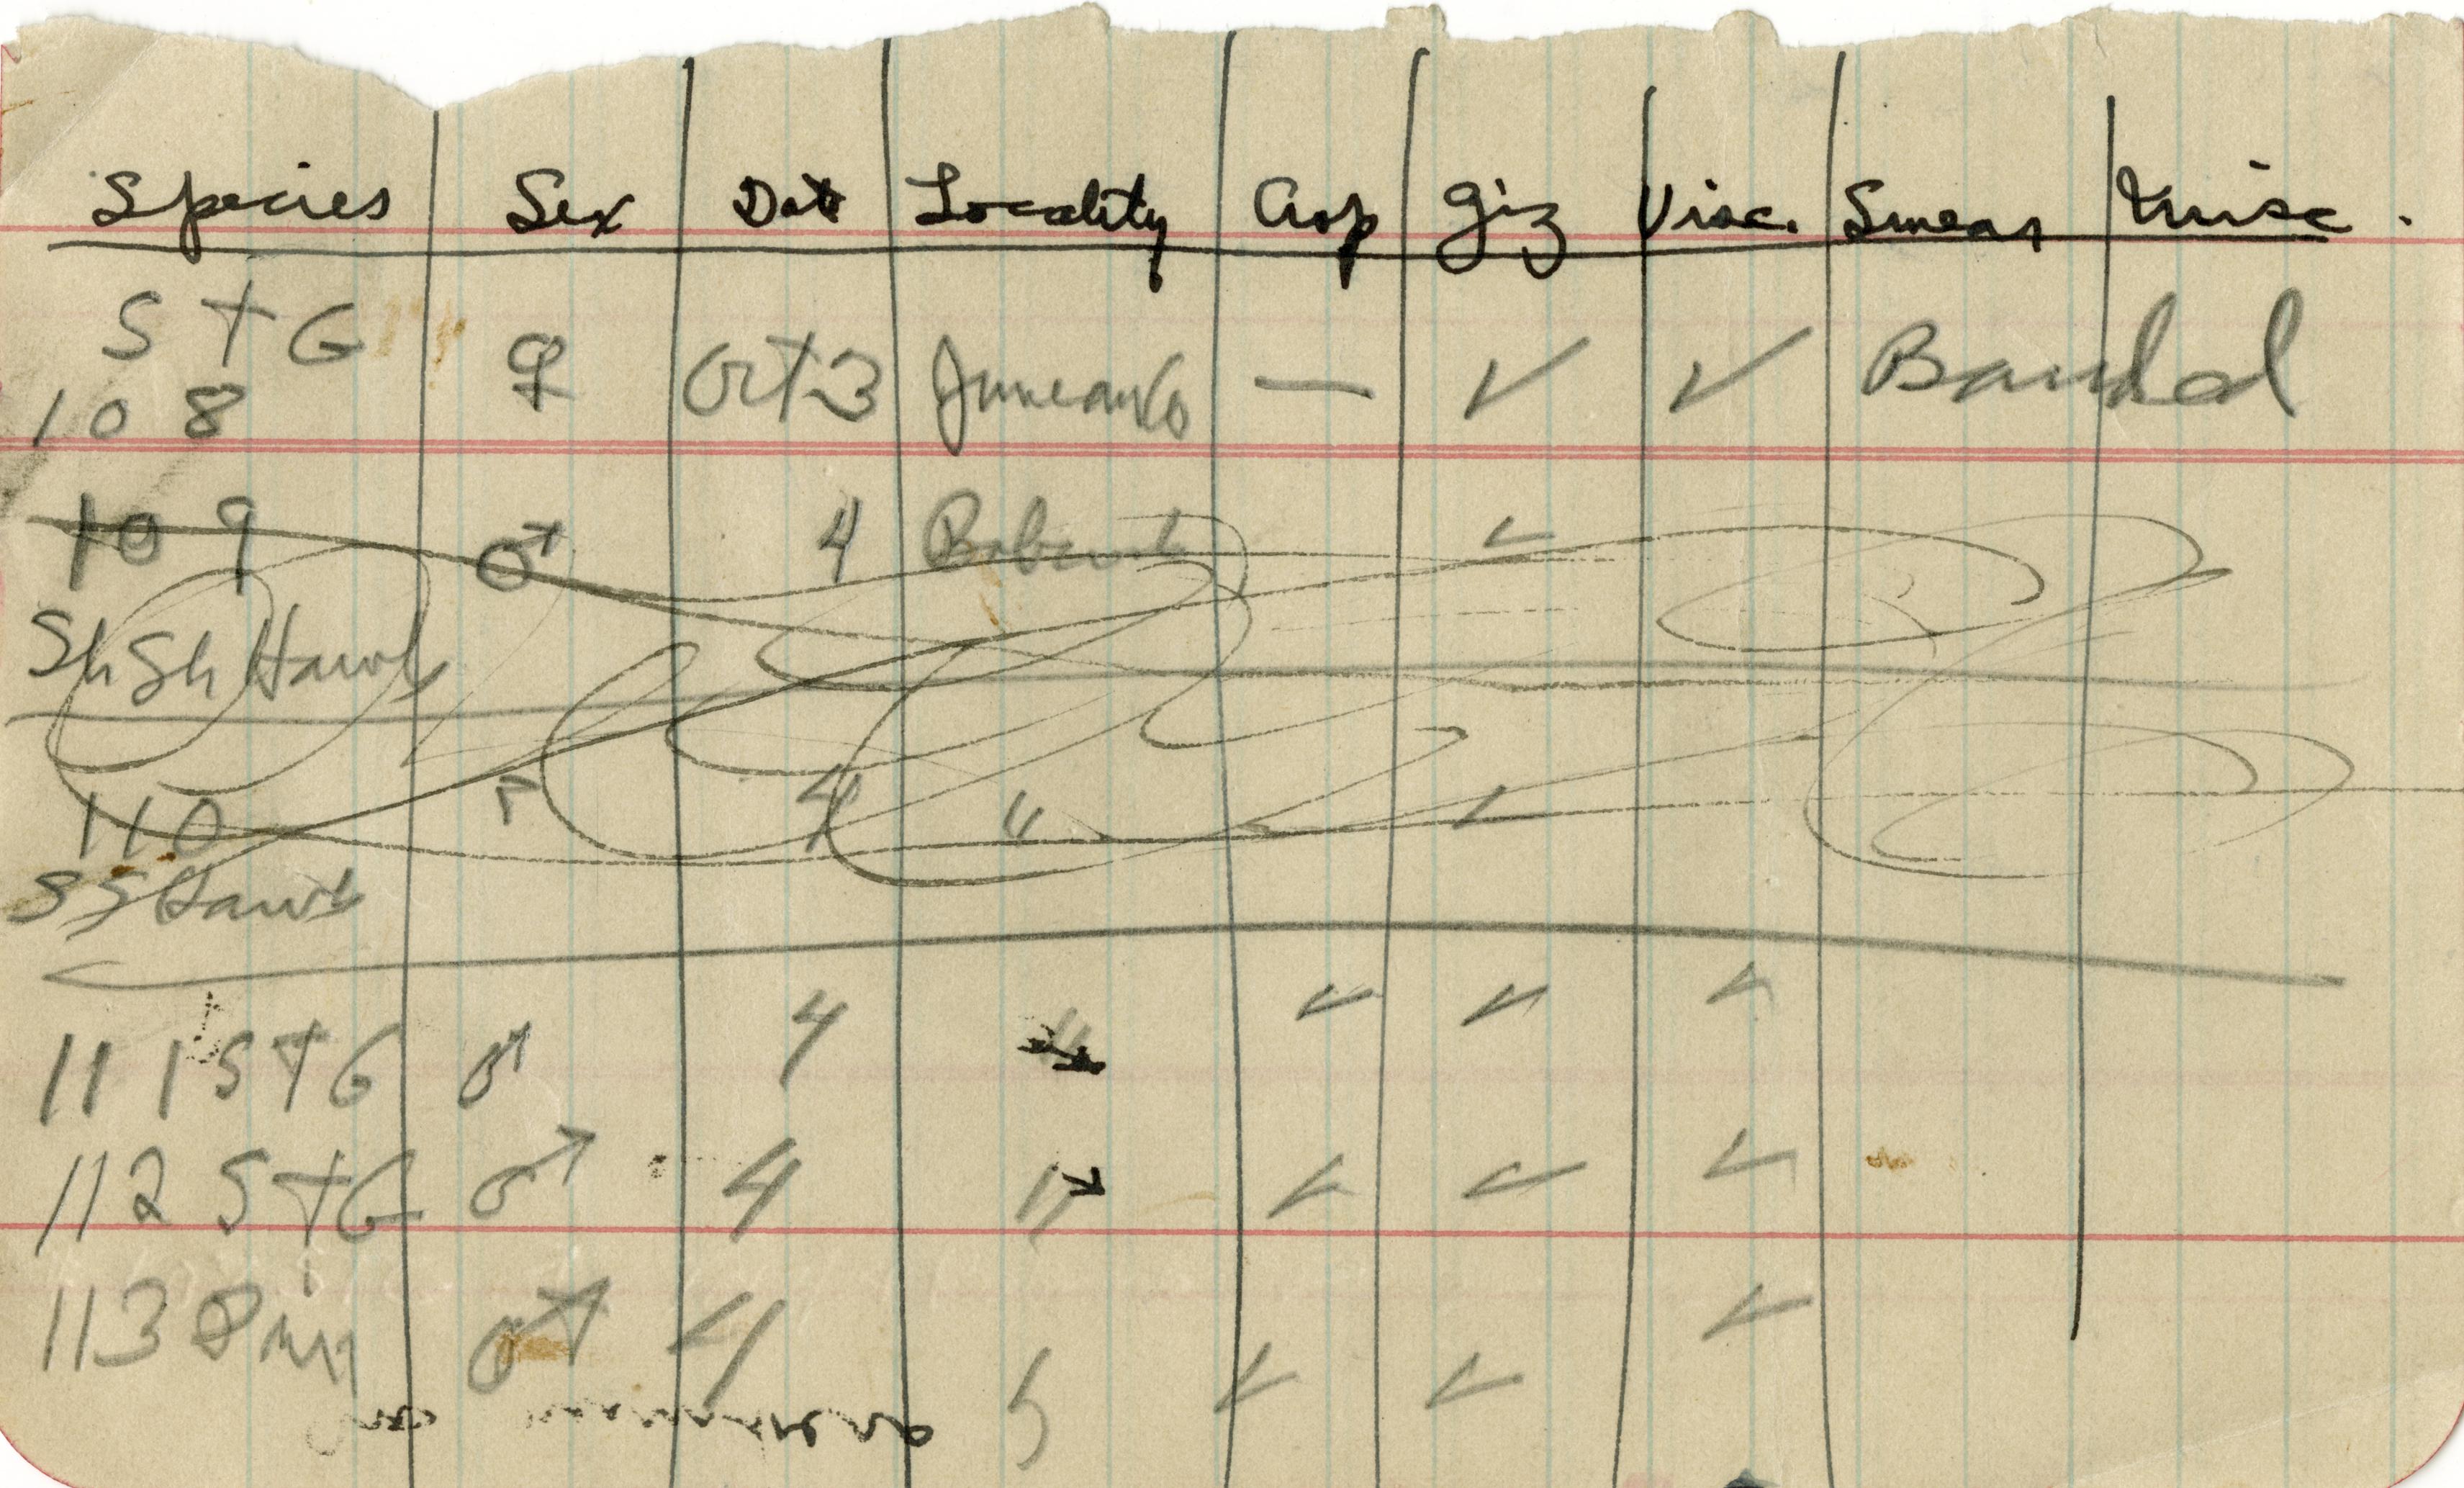 Species Sex Date Locality Crop Giz Visc. Smear Misc.
STG
108 ♀ Oct 3 Juneau Co — ✓ ✓ Banded
109 ♂ 4 Babcock ✓
Sh Sh Hawk
110 4 " ✓
SS Hawk
111 STG ♂ 4 " ✓ ✓ ✓
112 STG ♂ 4 " ✓ ✓ ✓
113 Pinn ♂ 4 ✓ ✓ ✓